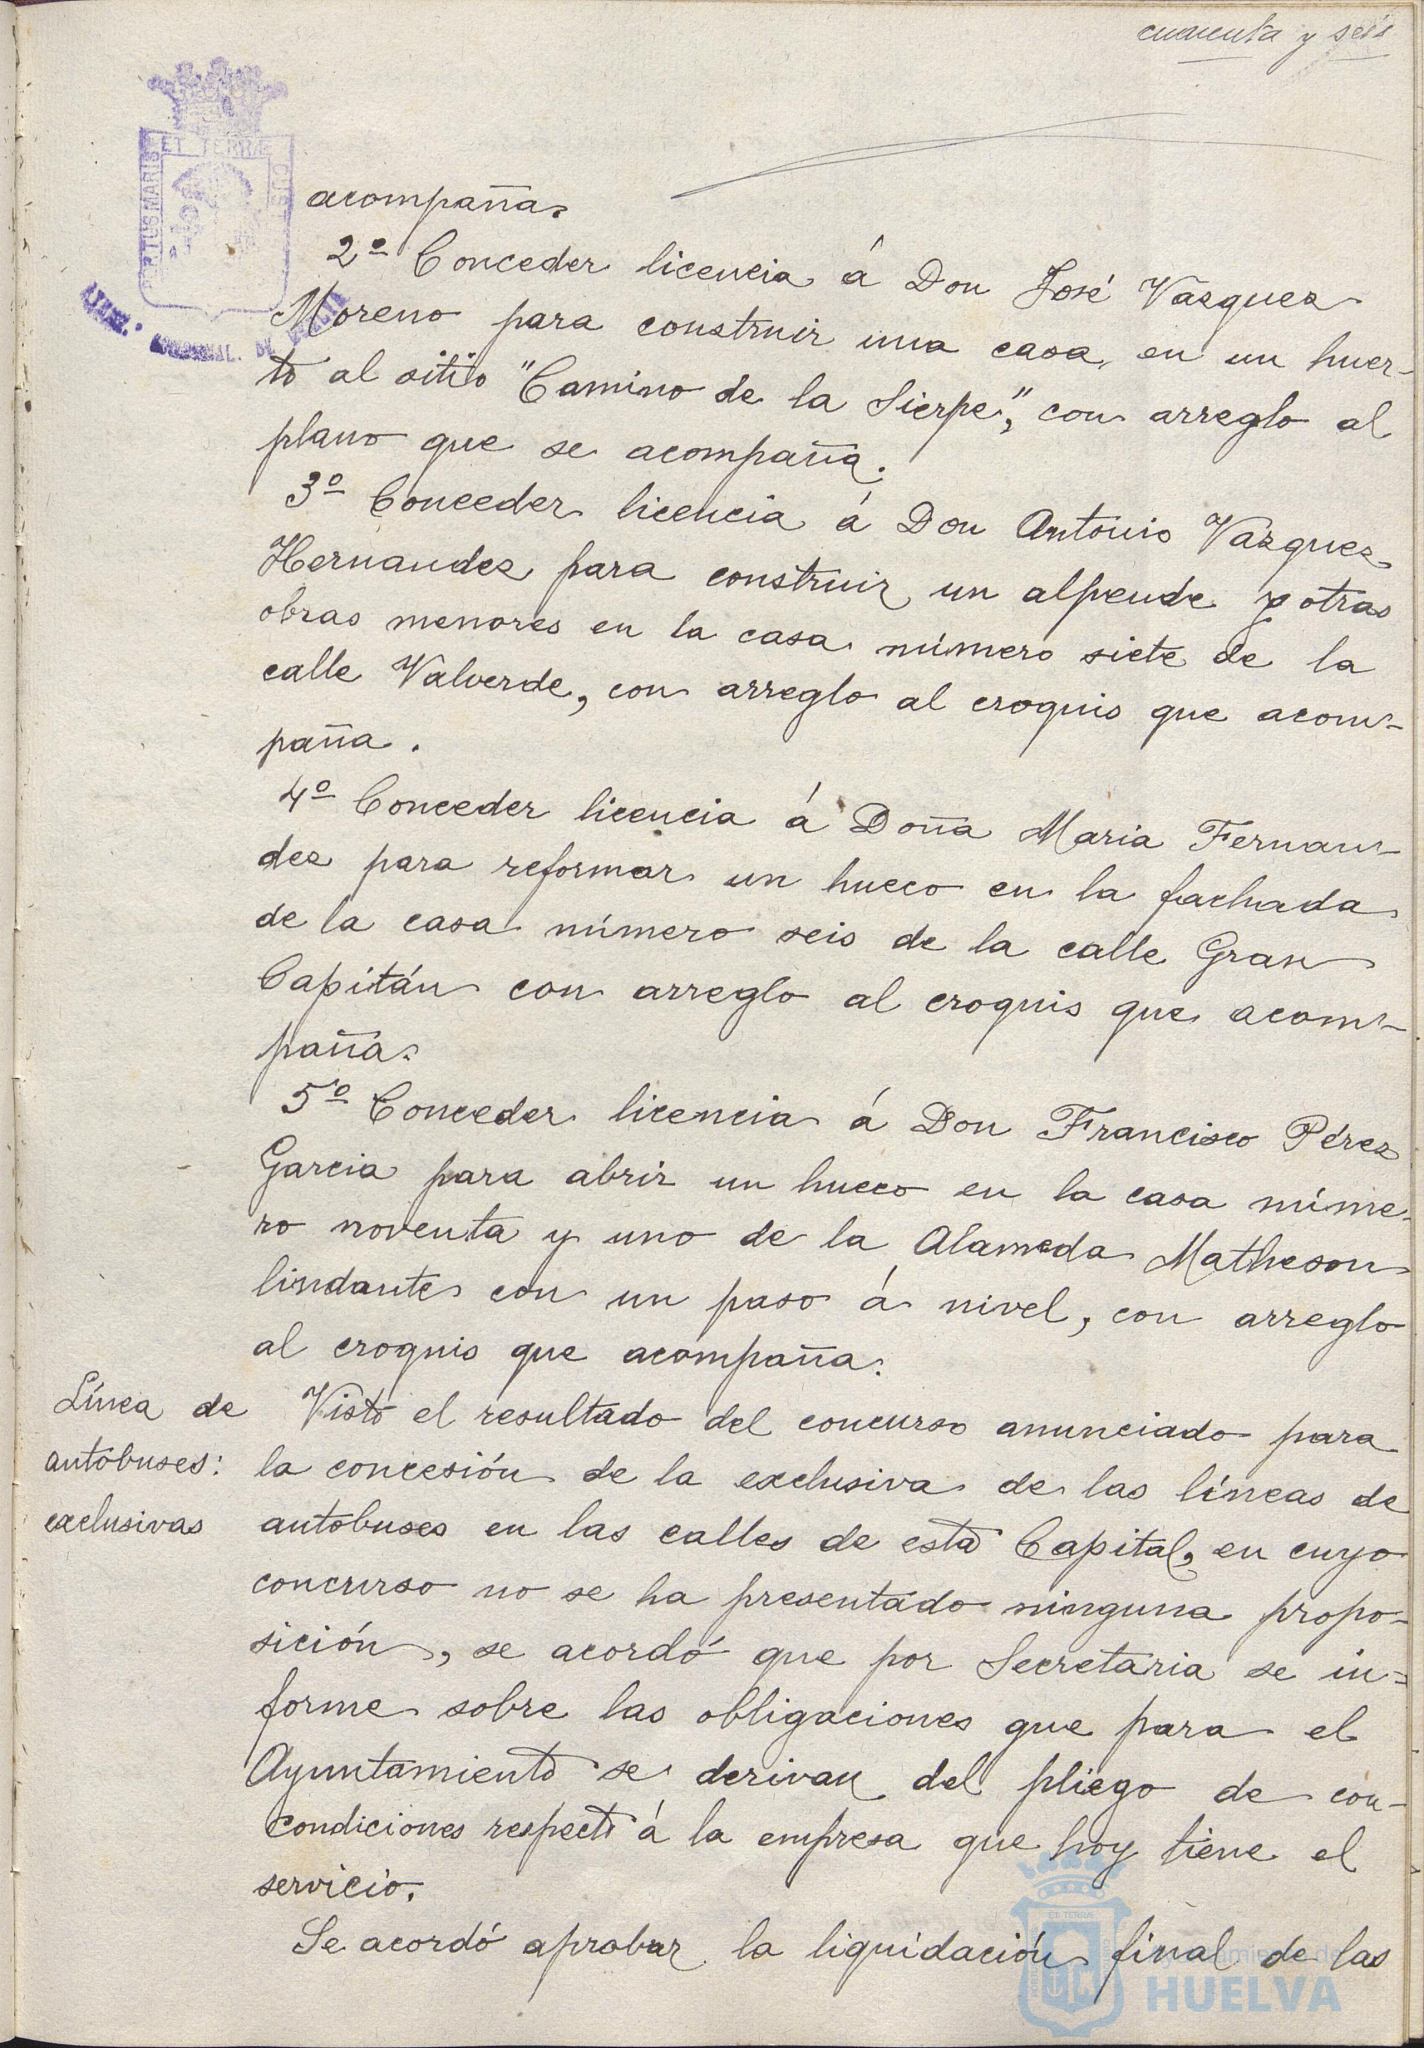 cincuenta y seis
ET TERRÆ
PORTUS MARIS
acompaña.
2º Conceder licencia á Don José Vazquez
Moreno para construir una casa en un huer-
to al sitio "Camino de la Sierpe", con arreglo al
plano que se acompaña.
3º Conceder licencia á Don Antonio Vazquez
Hernandez para construir un alpende y otras
obras menores en la casa número siete de la
calle Valverde, con arreglo al croquis que acom-
paña.
4º Conceder licencia á Doña Maria Fernan-
dez para reformar un hueco en la fachada
de la casa número seis de la calle Gran
Capitán con arreglo al croquis que acom-
paña.
5º Conceder licencia á Don Francisco Pérez
Garcia para abrir un hueco en la casa núme-
ro noventa y uno de la Alameda Matheson
lindante con un paso á nivel, con arreglo
al croquis que acompaña.
Línea de
autobuses:
exclusivas
Visto el resultado del concurso anunciado para
la concesión de la exclusiva de las líneas de
autobuses en las calles de esta Capital, en cuyo
concurso no se ha presentado ninguna propo-
sición, se acordó que por Secretaria se in-
forme sobre las obligaciones que para el
Ayuntamiento se derivan del pliego de con-
condiciones respecto á la empresa que hoy tiene el
servicio.
Se acordó aprobar la liquidación final de las
Ayuntamiento de
HUELVA